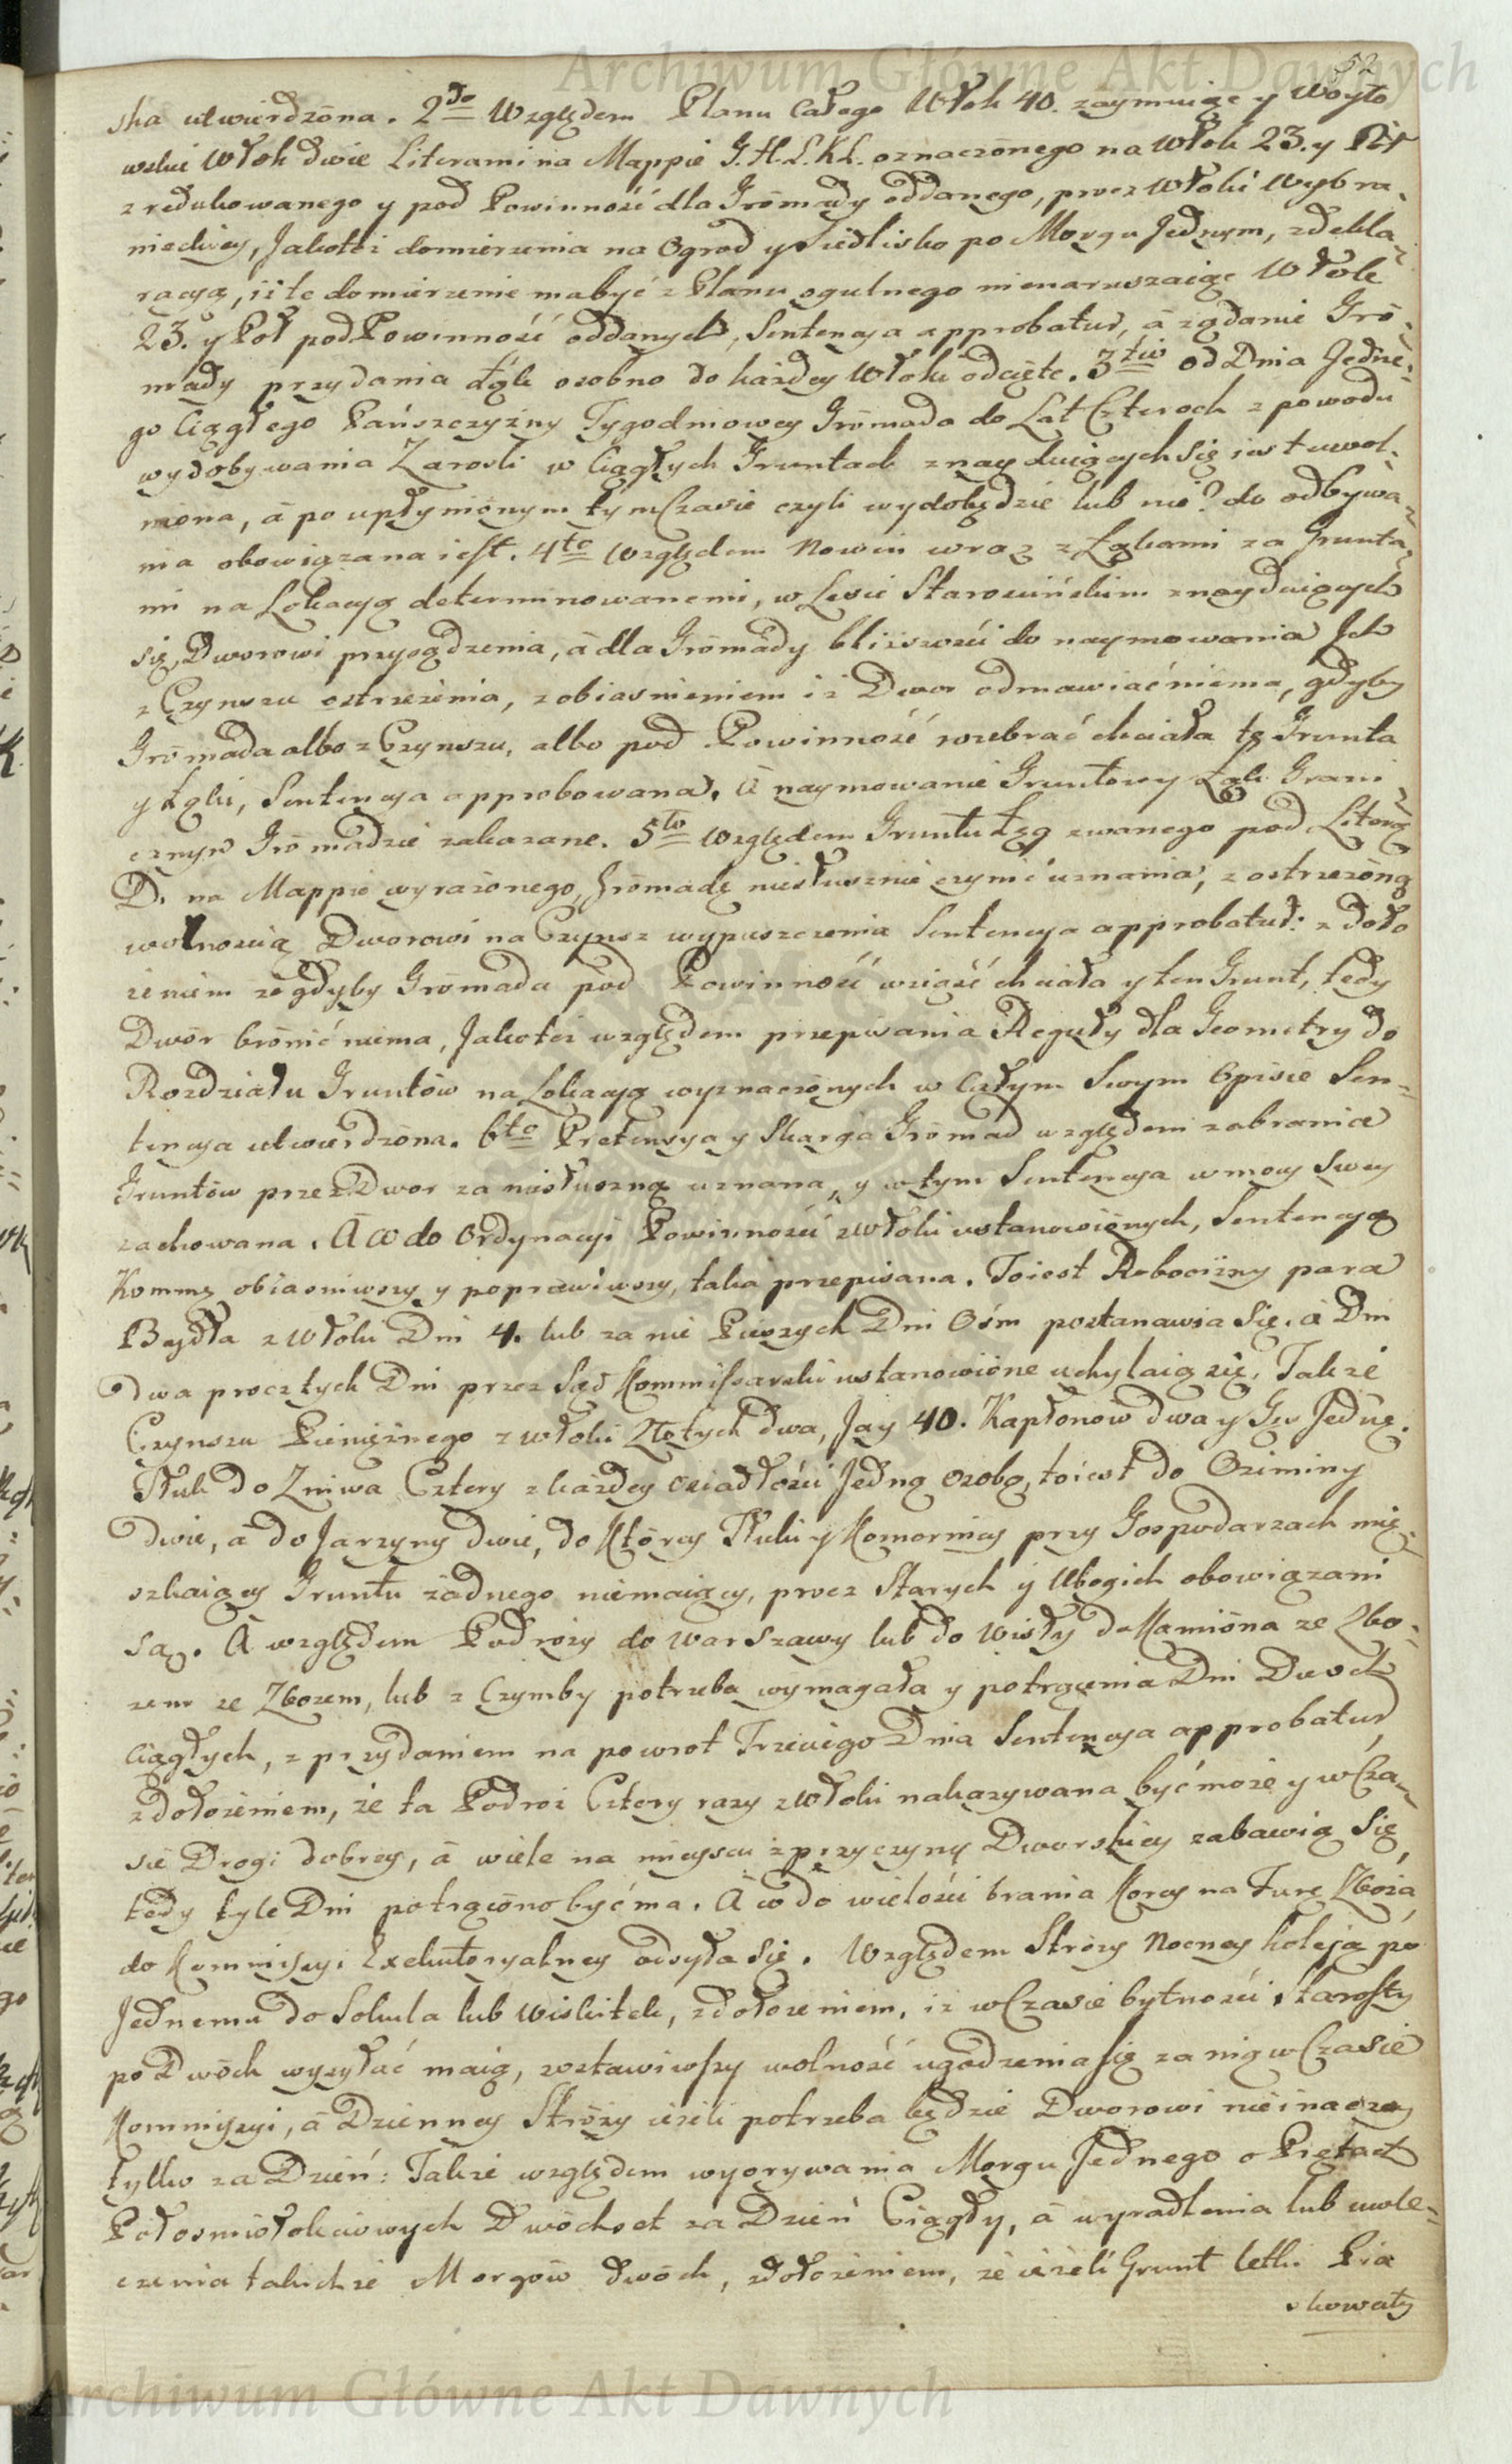 Archiwum Główne Akt Dawnych
52
ska utwierdzona. 2do Względem Planu całego Włok 40. zaymuiąc y Woyto
wskie Włok dwie Literami na Mappie G. H. L. K L. oznaczonego na Włok 23. y Puł
zredukowanego y pod Powinność dla Gromady oddanego, procz Włoki Wybra
nieckiey, Jakoteż domierzenia na Ogrod y Siedlisko po Morgu Jednym, zdekla
racyą, iż te domierzenie ma być z Planu ogulnego nienaruszaiąc Włok
23. y Poł pod Powinność oddanych, Sentencya approbatur, à żądanie Gro
mady przydania Łąk osobno do każdey Włoki odcięte. 3tio od Dnia Jedne
go Ciągłego Pańszczyzny Tygodniowey Gromada do Lat Czterech z powodu
wydobywania Zarosli w Ciągłych Gruntach znayduiących się iest uwol
niona, à po upłynionym tym Czasie czyli wydobędzie lub nie? do odbywa
nia obowiązana iest. 4to Względem Nowin wraz z Łąkami za Grunta
mi na Lokacyą determinowanemi, w Lesie Starowińskim znayduiących
się, Dworowi przysądzenia, à dla Gromady bliższości do naymowania Jch
z Czynszu ostrzeżenia, z obiasnieniem iż Dwor odmawiać niema, gdyby
Gromada albo z Czynszu, albo pod Powinność rozebrać chciała te Grunta
y Łąki, Sentencya approbowana. A naymowanie Gruntow y Łąk Grani
cznym Gromadzie zakazane. 5to Względem Gruntu Łęg zwanego pod Literą
D. na Mappie wyrażonego, Gromadę niesłusznie czynić uznania, z ostrzeżoną
wolnością Dworowi na Czynsz wypuszczenia Sentencya approbatur: z doło
żeniem że gdyby Gromada pod Powinność wziąść chciała y ten Grunt, tedy
Dwór bronić niema, Jakoteż względem przepisania Reguły dla Geometry do
Rozdziału Gruntów na Lokacyą wyznaczonych w całym Swym Opisie Sen
tencya utwierdzona. 6to Pretensya y Skarga Gromad względem zabrania
Gruntów przez Dwor za niesłuszną uznana, y w tym Sentencya w mocy swey
zachowana. A co do Ordynacyi Powinności z Włoki ustanowionych, Sentencyą
Kommą obiasniwszy y poprawiwszy, taka przepisana. Toiest Robocizny para
Bydła z Włoki Dni 4. lub za nie Pieszych Dni Ośm postanawia się. à Dni
Dwa procz tych Dni przez Sąd Kommissarski ustanowione uchylaią się. Takze
Czynszu Pieniężnego z włoki Złotych dwa, Jay 40. Kapłonow dwa y Gęś Jednę.
Tłuk do Zniwa Cztery z każdey osiadłości Jedną osobą, toiest do Oziminy
dwie, à do Jarzyny dwie, do Ktorey Tłuki y Komornicy przy Gospodarzach mię
szkaiący Gruntu żadnego niemaiący, procz Starych y Ubogich obowiązani
są. A względem Podroży do Warszawy lub do Wisły do Kamiona ze Zbo
żem ze Zbożem, lub z Czymby potrzeba wymagała y potrącenia Dni Dwoch
Ciągłych, z przydaniem na powrot Trzeciego Dnia Sentencya approbatur,
z dołożeniem, że ta Podroż Cztery razy z Włoki nakazywana być może y w Cza
sie Drogi dobrey, à wiele na mieyscu z przyczyny Dworskiey zabawią się,
tedy tyle Dni potrącono być ma. A co do wielości brania Korcy na Furę Zboża,
do Kommissyi Exekutoryalney odsyła się. Względem Stroży Nocney koleją po
Jednemu do Sokula lub Wiskitek, z dołożeniem, iż w Czasie bytności Starosty
po Dwóch wysyłać maią, zostawiwszy wolność ugodzenia się za nią w Czasie
Kommissyi, à Dzienney Stróży ieżeli potrzeba będzie Dworowi nieinaczey
tylko za Dzień: Takze względem wyorywania Morgu Jednego o Prętach
Połosmiołokciowych Dwóchset za Dzień Ciągły, à uradlenia lub uwle
czenia takichże Morgów dwóch, z dołożeniem, że ieżeli Grunt letki Pia
skowaty
Archiwum Główne Akt Dawnych